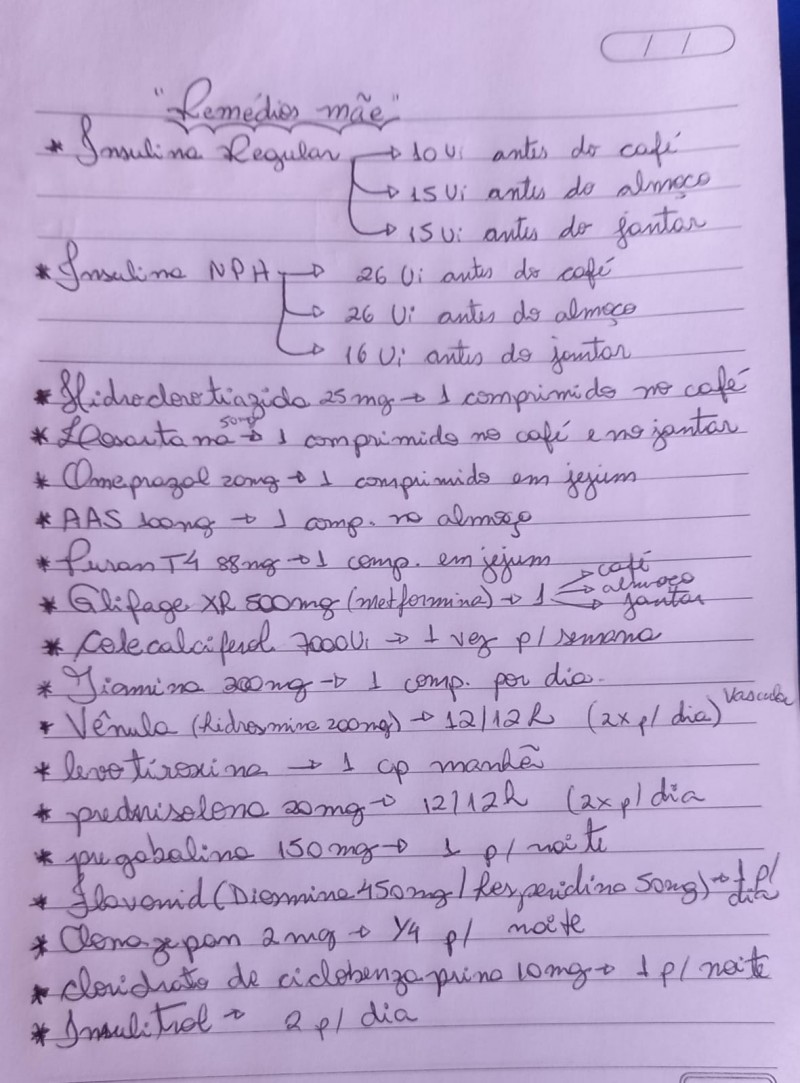 / /
"Remédios mãe"
* Insulina Regular → 10 Ui antes do café
→ 15 Ui antes do almoço
→ 15 Ui antes do jantar
* Insulina NPH → 26 Ui antes do café
→ 26 Ui antes do almoço
→ 16 Ui antes do jantar
* Hidroclorotiazida 25mg → 1 comprimido no café
* Losartana 50mg → 1 comprimido no café e no jantar
* Omeprazol 20mg → 1 comprimido em jejum
* AAS 100mg → 1 comp. no almoço
* Puran T4 88mg → 1 comp. em jejum
* Glifage XR 500mg (metformina) → 1 → café → almoço → jantar
* Colecalciferol 7000Ui → 1 vez p/ semana
* Tiamina 300mg → 1 comp. por dia.
* Vênula (hidrosmina 200mg) → 12/12h (2x p/ dia) Vascular
* levotiroxina → 1 cp manhã
* prednisolona 20mg → 12/12h (2x p/ dia
* pregabalina 150mg → 1 p/ noite
* Flavonid (Diosmina 450mg / Hesperidina 50mg) → 1 p/ dia
* Clonazepan 2mg → 1/4 p/ noite
* cloridrato de ciclobenzaprina 10mg → 1 p/ noite
* Insulitrol → 2 p/ dia